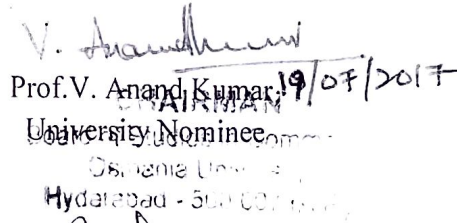 V. Anandkumar
Prof.V. Anand Kumar 19/07/2017
CHAIRMAN
University Nominee
Board of Studies
Osmania
Hyderabad - 500 007